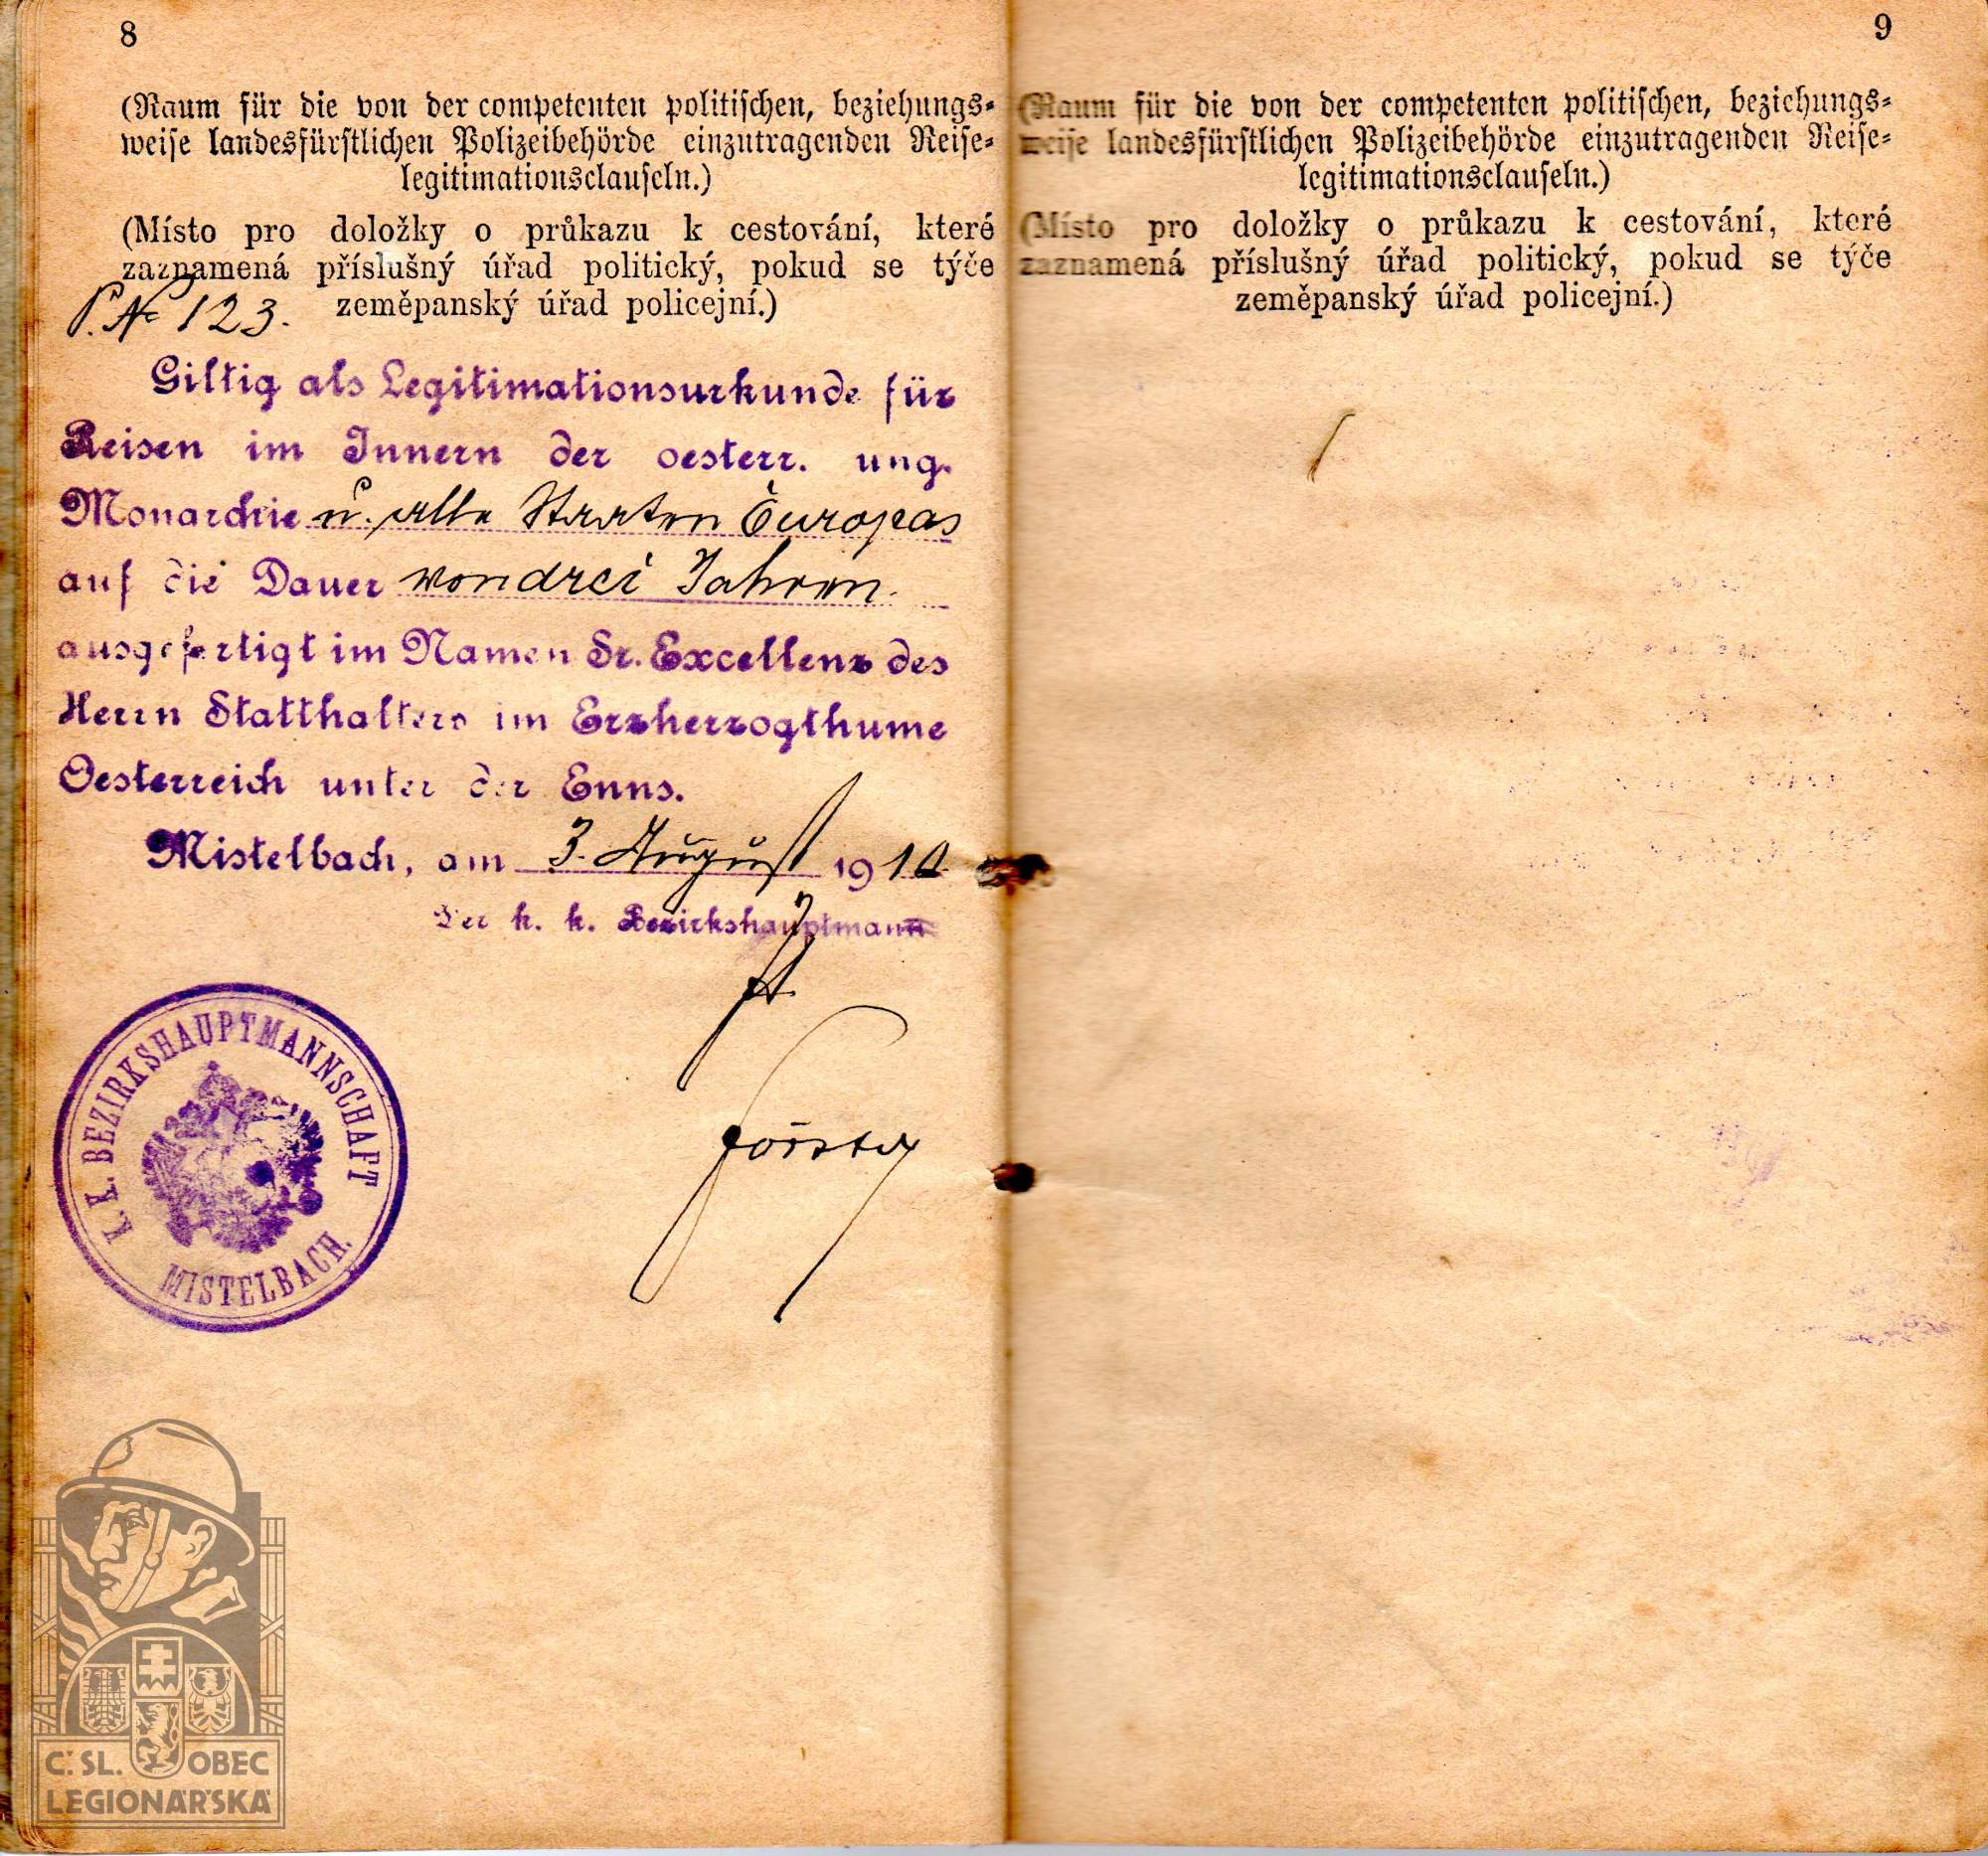 8
(Raum für die von der competenten politischen, beziehungs-
weise landesfürstlichen Polizeibehörde einzutragenden Reise-
legitimationsclauseln.)
(Místo pro doložky o průkazu k cestování, které
zaznamená příslušný úřad politický, pokud se týče
zeměpanský úřad policejní.)
P. No 123.
Giltig als Legitimationsurkunde für
Reisen im Innern der oesterr. ung.
Monarchie u. alle Staaten Europas
auf die Dauer von drei Jahren.
ausgefertigt im Namen Sr. Excellenz des
Herrn Statthalters im Erzherzogthume
Oesterreich unter der Enns.
Mistelbach, am 3. August 1910
Der k. k. Bezirkshauptmann
Förster
K. K. BEZIRKSHAUPTMANNSCHAFT
MISTELBACH.
Č. SL. OBEC
LEGIONÁŘSKÁ
9
(Raum für die von der competenten politischen, beziehungs-
weise landesfürstlichen Polizeibehörde einzutragenden Reise-
legitimationsclauseln.)
(Místo pro doložky o průkazu k cestování, které
zaznamená příslušný úřad politický, pokud se týče
zeměpanský úřad policejní.)